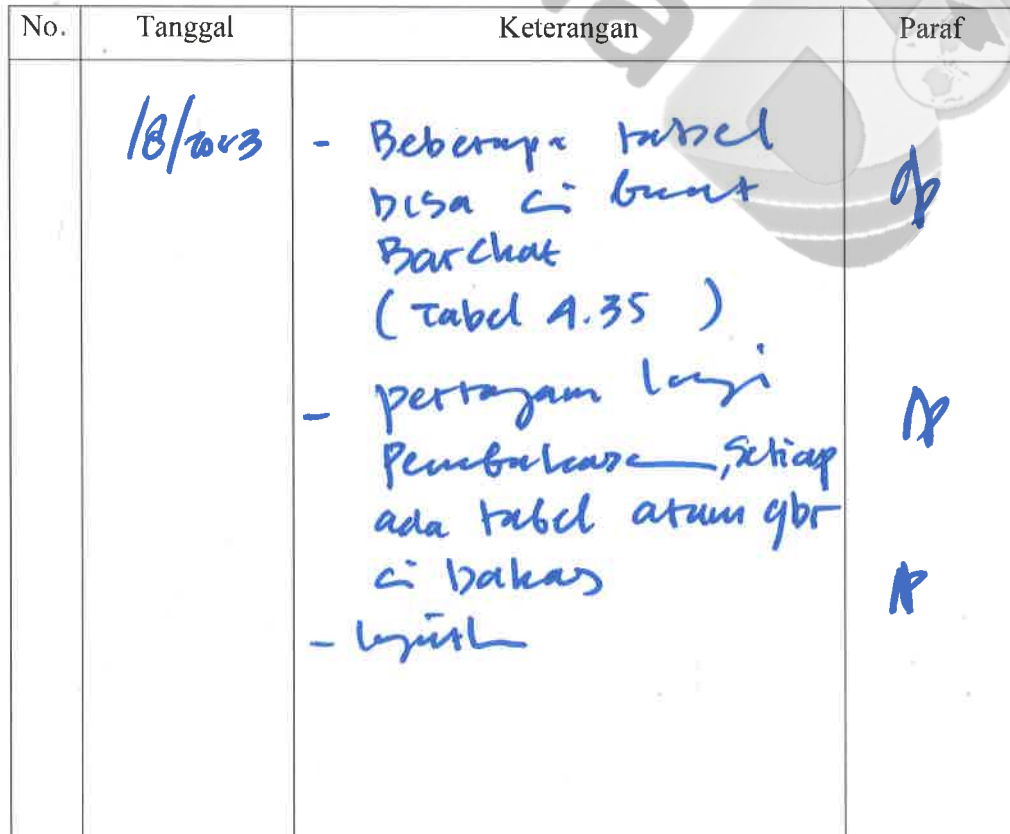 No. Tanggal Keterangan Paraf
/8/2023 - Beberapa tabel
bisa di buat
Barchat
(Tabel 4.35 )
- pertajam lagi
Pembahasan, Setiap
ada tabel atau gbr
di bahas
-